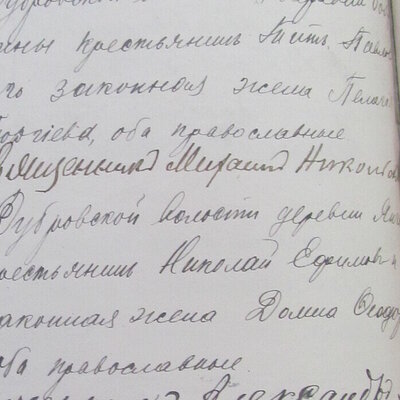 крестьянинъ Титъ Павло
законная жена Пелаге
оргіева, оба православные
Священникъ Михаилъ Николаев
Дубровской волости деревни
рестьянинъ Николай Ефимовъ и
законная жена Домна Феодо
оба православные.
Александръ